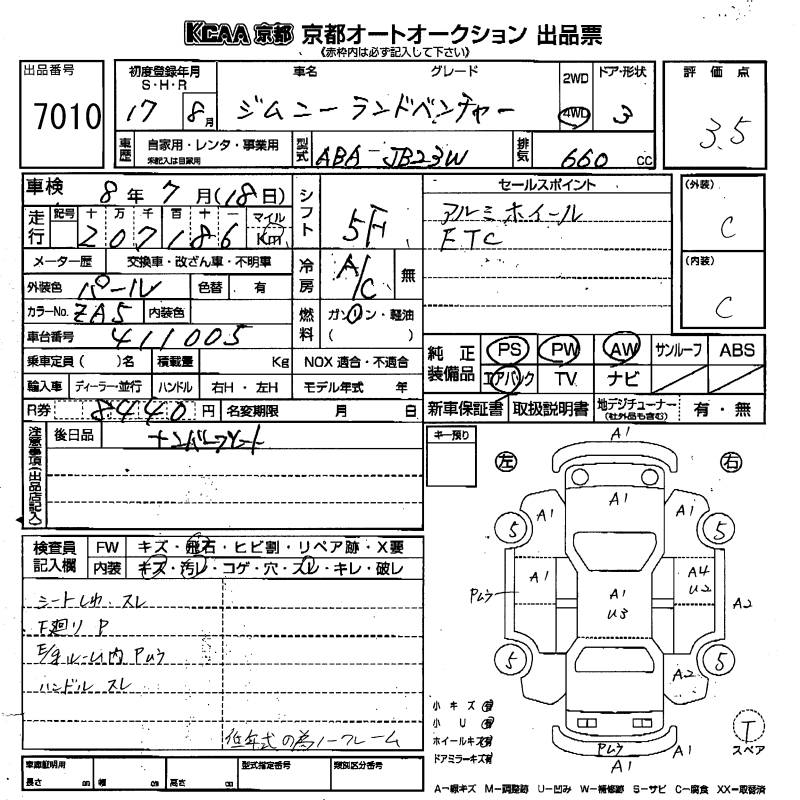 KCAA 京都 京都オートオークション 出品票
《赤枠内は必ず記入して下さい》
出品番号
7010
初度登録年月
S・H・R
17 8月
車名 グレード
ジムニー ランドベンチャー
2WD
4WD
ドア・形状
3
評価点
3.5
車歴
自家用・レンタ・事業用
未記入は自家用
型式
ABA-JB23W
排気
660 cc
車検 8年7月(18日)
走行
記号 十 万 千 百 十 一
207186
マイル
Km
シフト
5F
メーター歴 交換車・改ざん車・不明車
冷房
A/C
無
外装色 パール 色替 有
カラーNo. ZA5 内装色
燃料
ガソリン・軽油
( )
車台番号 411005
乗車定員( )名 積載量 Kg NOX 適合・不適合
輸入車 ディーラー・並行 ハンドル 右H・左H モデル年式 年
R券 8440円 名変期限 月 日
セールスポイント
アルミホイール
ETC
(外装)
C
(内装)
C
純正装備品
PS PW AW サンルーフ ABS
エアバック TV ナビ
新車保証書 取扱説明書 地デジチューナー(社外品も含む) 有・無
注意事項(出品店記入)
後日品 ナンバープレート
キー預り
検査員記入欄
FW キズ・飛石・ヒビ割・リペア跡・X要
内装 キズ・汚レ・コゲ・穴・スレ・キレ・破レ
シートしわ、スレ
下廻り P
E/gルーム内 Pムラ
ハンドル スレ
低年式の為ノーフレーム
左 右
A1
A1
A1 A1
5 5
Pムラ A1 A1 U3 A4 U2 A2
5 5
A2
Pムラ A1
A1
小キズ有
小U有
ホイールキズ有
ドアミラーキズ有
T
スペア
車庫証明用
長さ cm 幅 cm 高さ cm
型式指定番号 類別区分番号
A－線キズ M－調整跡 U－凹み W－補修跡 S－サビ C－腐食 XX－取替済